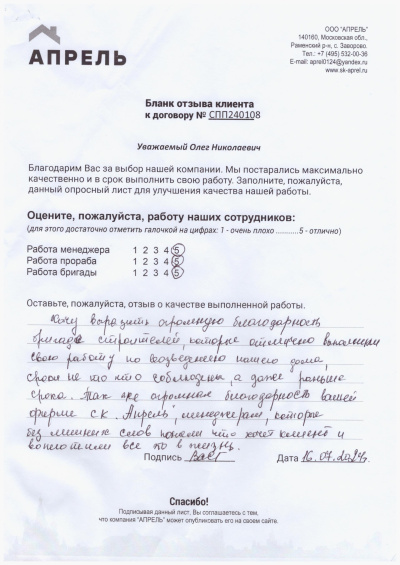 АПРЕЛЬ
ООО "АПРЕЛЬ"
140160, Московская обл.,
Раменский р-н, с. Заворово.
Тел.: +7 (495) 532-00-36
E-mail: aprel0124@yandex.ru
www.sk-aprel.ru
Бланк отзыва клиента
к договору № СПП240108
Уважаемый Олег Николаевич
Благодарим Вас за выбор нашей компании. Мы постарались максимально
качественно и в срок выполнить свою работу. Заполните, пожалуйста,
данный опросный лист для улучшения качества нашей работы.
Оцените, пожалуйста, работу наших сотрудников:
(для этого достаточно отметить галочкой на цифрах: 1 - очень плохо ...........5 - отлично)
Работа менеджера 1 2 3 4 5
Работа прораба 1 2 3 4 5
Работа бригады 1 2 3 4 5
Оставьте, пожалуйста, отзыв о качестве выполненной работы.
Хочу выразить огромную благодарность
бригаде строителей, которые отлично выполнили
свою работу по возведению нашего дома,
сроки не то что соблюдены, а даже раньше
срока. Так же огромная благодарность вашей
фирме с.к. "Апрель", менеджерам, которые
без лишних слов поняли что хочет клиент и
воплотили все то в жизнь.
Подпись Дата 16.07.2024г.
Спасибо!
Подписывая данный лист, Вы соглашаетесь с тем,
что компания "АПРЕЛЬ" может опубликовать его на своем сайте.